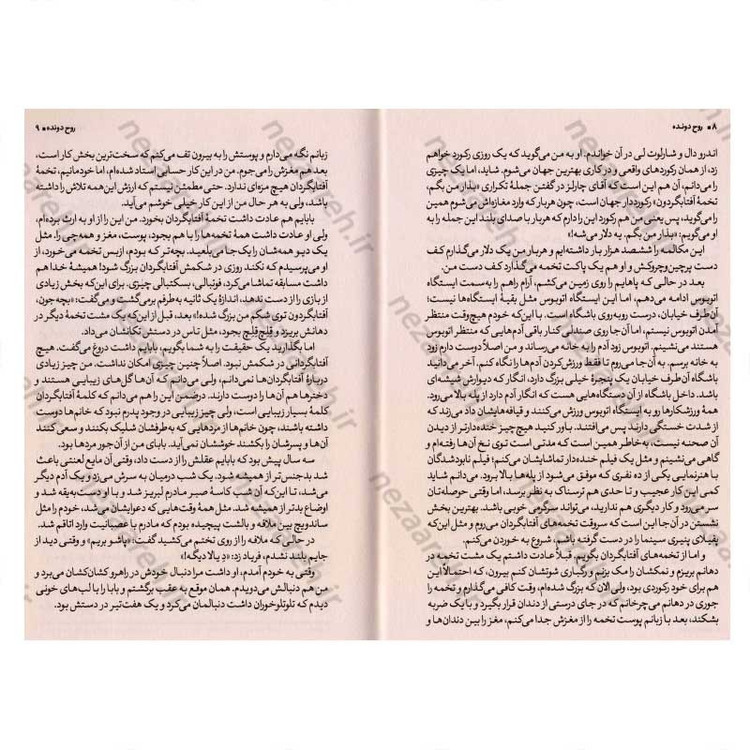 ۸ ■ روح دونده
اندرو دال و شارلوت لی در آن خواندم. او به من می‌گوید که یک روزی رکورد خواهم
زد، از همان رکوردهای واقعی و در کاری بهترین جهان می‌شوم. شاید، اما یک چیزی
را می‌دانم، آن هم این است که آقای چارلز در گفتن جملهٔ تکراری «بذار من بگم،
تخمهٔ آفتابگردون» رکورددار جهان است، چون هربار که وارد مغازه‌اش می‌شوم همین
را می‌گوید، پس یعنی من هم رکورد این را دارم که هربار با صدای بلند این جمله را به
او می‌گویم: «بذار من بگم. یه دلار می‌شه!»
این مکالمه را ششصد هزار بار داشته‌ایم و هربار من یک دلار می‌گذارم کف
دست پرچین‌وچروکش و او هم یک پاکت تخمه می‌گذارد کف دست من.
بعد در حالی که پاهایم را روی زمین می‌کشم، آرام راهم را به‌سمت ایستگاه
اتوبوس ادامه می‌دهم، اما این ایستگاه اتوبوس مثل بقیهٔ ایستگاه‌ها نیست؛
آن‌طرف خیابان، درست روبه‌روی باشگاه است. با این‌که خودم هیچ‌وقت منتظر
آمدن اتوبوس نیستم، اما آن‌جا روی صندلی کنار باقی آدم‌هایی که منتظر اتوبوس
هستند می‌نشینم. اتوبوس زود آدم را به خانه می‌رساند و من اصلاً دوست دارم زود
به خانه برسم. به آن‌جا می‌روم تا فقط ورزش‌کردن آدم‌ها را نگاه کنم، آخر می‌دانید
باشگاه آن‌طرف خیابان یک پنجرهٔ خیلی بزرگ دارد، انگار که دیوارش شیشه‌ای
باشد. داخل باشگاه از آن دستگاه‌هایی هست که انگار آدم دارد از پله بالا می‌رود.
همهٔ ورزشکارها رو به ایستگاه اتوبوس ورزش می‌کنند و قیافه‌هایشان داد می‌زند که
از شدت خستگی دارند پس می‌افتند. باور کنید هیچ‌چیز خنده‌دارتر از دیدن
آن صحنه نیست، به‌خاطر همین است که مدتی است توی نخ آن‌ها رفته‌ام و
گاهی می‌نشینم و مثل یک فیلم خنده‌دار تماشایشان می‌کنم؛ فیلم نابودشدگان
با هنرنمایی یکی از ده نفری که موفق می‌شود از پله‌ها بالا برود. می‌دانم شاید
کمی این کار عجیب و تا حدی هم ترسناک به نظر برسد، اما وقتی حوصله‌تان
سر می‌رود و کار دیگری هم ندارید، می‌تواند سرگرمی خوبی باشد. بهترین بخش
نشستن در آن‌جا این است که سروقت تخمه‌های آفتابگردان می‌روم و مثل این‌که
پفیلای پنیری سینما را در دست گرفته باشم، شروع به خوردن می‌کنم.
و اما از تخمه‌های آفتابگردان بگویم. قبلاً عادت داشتم یک مشت تخمه در
دهانم بریزم و نمکشان را مک بزنم و رگباری شوتشان کنم بیرون، که احتمالاً این
هم برای خود رکوردی بود، ولی الان که بزرگ شده‌ام، وقت کافی می‌گذارم و تخمه را
جوری در دهانم می‌چرخانم که در جای درستی از دندان قرار بگیرد و با یک ضربه
بشکند، بعد با زبانم پوست تخمه را از مغزش جدا می‌کنم، مغز را بین دندان‌ها و
روح دونده ■ ۹
زبانم نگه می‌دارم و پوستش را به بیرون تف می‌کنم که سخت‌ترین بخش کار است،
بعد هم مغزش را می‌جوم. من در این کار حسابی استاد شده‌ام، اما خودمانیم، تخمهٔ
آفتابگردان هیچ مزه‌ای ندارد. حتی مطمئن نیستم که ارزش این‌همه تلاش را داشته
باشد، ولی به هر حال من از این کار خیلی خوشم می‌آید.
بابایم هم عادت داشت تخمهٔ آفتابگردان بخورد. من این را از او به ارث برده‌ام،
ولی او عادت داشت همهٔ تخمه‌ها را با هم بجود، پوست، مغز و همه‌چی را. مثل
یک دیو همه‌شان را یک‌جا می‌بلعید. بچه‌تر که بودم، ازبس تخمه می‌خورد، از
او می‌پرسیدم که نکند روزی در شکمش آفتابگردان بزرگ شود! همیشهٔ خدا هم
داشت مسابقه تماشا می‌کرد، فوتبالی، بسکتبالی چیزی. برای این‌که بخش زیادی
از بازی را از دست ندهد، اندازهٔ یک ثانیه به‌طرفم برمی‌گشت و می‌گفت: «بچه‌جون،
آفتابگردون توی شکم من بزرگ شده!» بعد، قبل از این‌که یک مشت تخمهٔ دیگر در
دهانش بریزد و قِلِچ‌قِلِچ بجود، مثل تاس در دستش تکانشان می‌داد.
اما بگذارید یک حقیقت را به شما بگویم. بابایم داشت دروغ می‌گفت. هیچ
آفتابگردانی در شکمش نبود. اصلاً چنین چیزی امکان نداشت. من چیز زیادی
دربارهٔ آفتابگردان‌ها نمی‌دانم، ولی می‌دانم که آن‌ها گل‌های زیبایی هستند و
دخترها هم آن‌ها را دوست دارند. درضمن این را هم می‌دانم که کلمهٔ آفتابگردان
کلمهٔ بسیار زیبایی است، ولی چیز زیبایی در وجود پدرم نبود که خانم‌ها دوست
داشته باشند، چون خانم‌ها از مردهایی که به‌طرفشان شلیک بکنند و سعی کنند
آن‌ها و پسرشان را بکشند خوششان نمی‌آید. بابای من از آن‌جور مردها بود.
سه سال پیش بود که بابایم عقلش را از دست داد، وقتی آن مایع لعنتی باعث
شد بدجنس‌تر از همیشه شود. یک شب درمیان به سرش می‌زد و یک آدم دیگر
می‌شد، تا این‌که آن شب کاسهٔ صبر مادرم لبریز شد و با او دست‌به‌یقه شد و
اوضاع بدتر از همیشه شد. مثل همهٔ وقت‌هایی که دعوایشان می‌شد، خودم را مثل
ساندویچ بین ملافه و بالشت پیچیده بودم که مادرم با عصبانیت وارد اتاقم شد.
در حالی که ملافه را از روی تختم می‌کشید گفت: «پاشو بریم» و وقتی دید از
جایم بلند نشدم، فریاد زد: «دِ یالا دیگه!»
وقتی به خودم آمدم، او داشت مرا دنبال خودش در راهرو کشان‌کشان می‌برد و
من هم دنبالش می‌دویدم. همان موقع به عقب برگشتم و بابا را با لب‌های خونی
دیدم که تلوتلوخوران داشت دنبالمان می‌کرد و یک هفت‌تیر در دستش بود.
nezaareh.ir